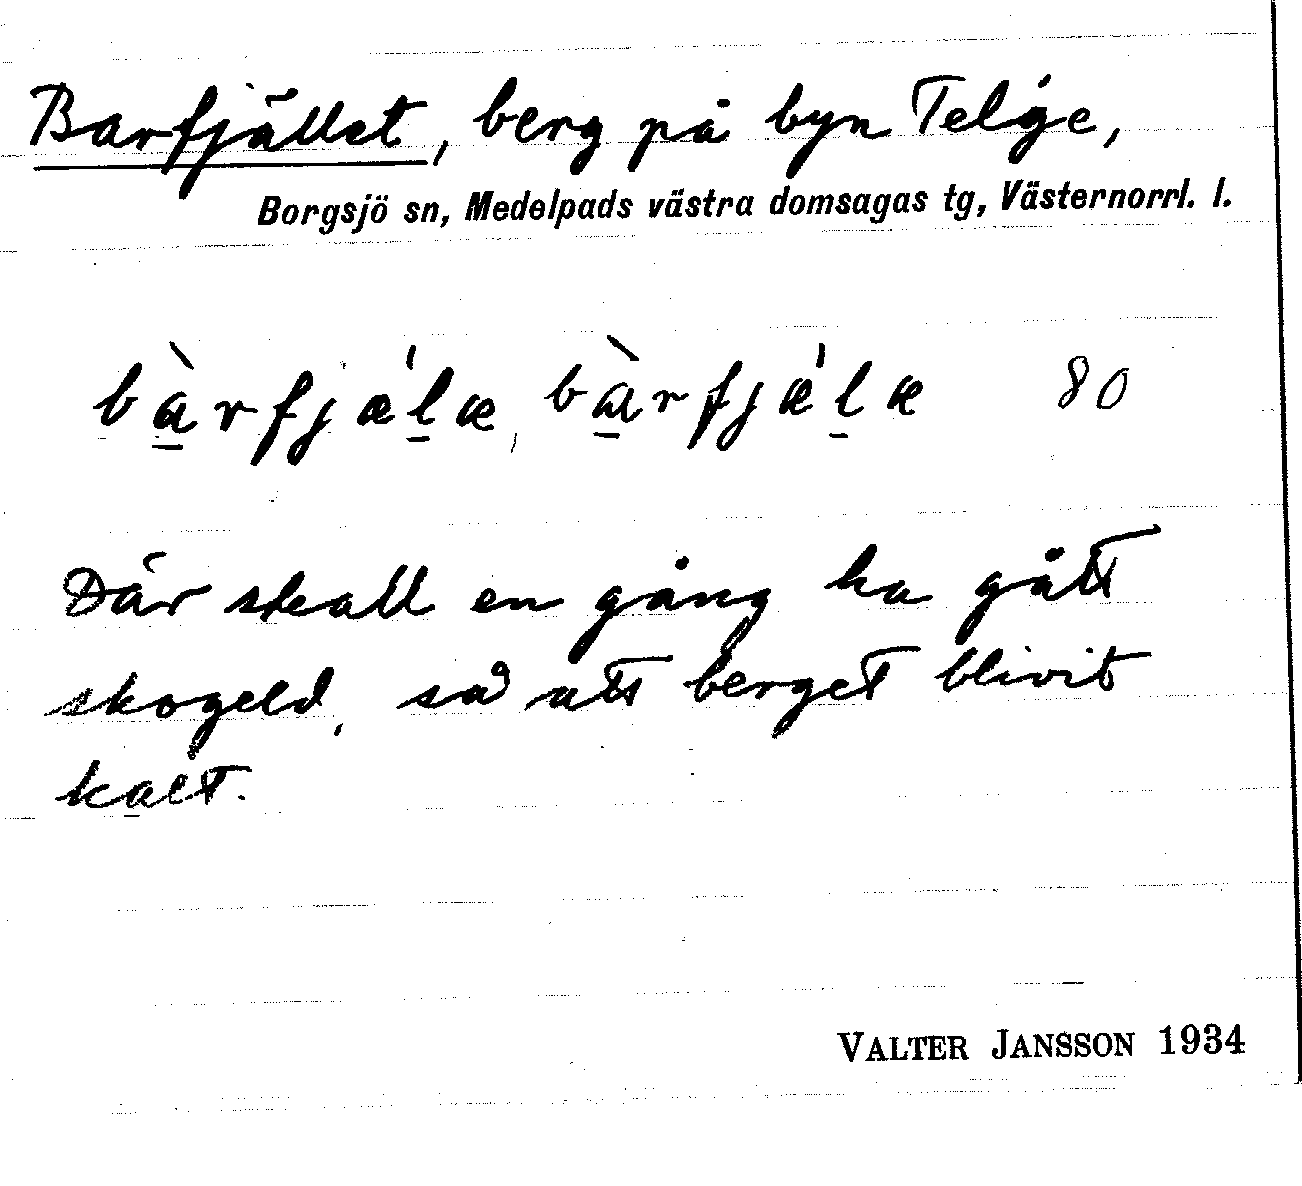 Barfjället, berg på byn Telge,
Borgsjö sn, Medelpads västra domsagas tg, Västernorrl. l.
bàrfjæ̍læ, bàrfjæ̍læ 80
Där skall en gång ha gått
skogeld, så att berget blivit
kalt.
VALTER JANSSON 1934